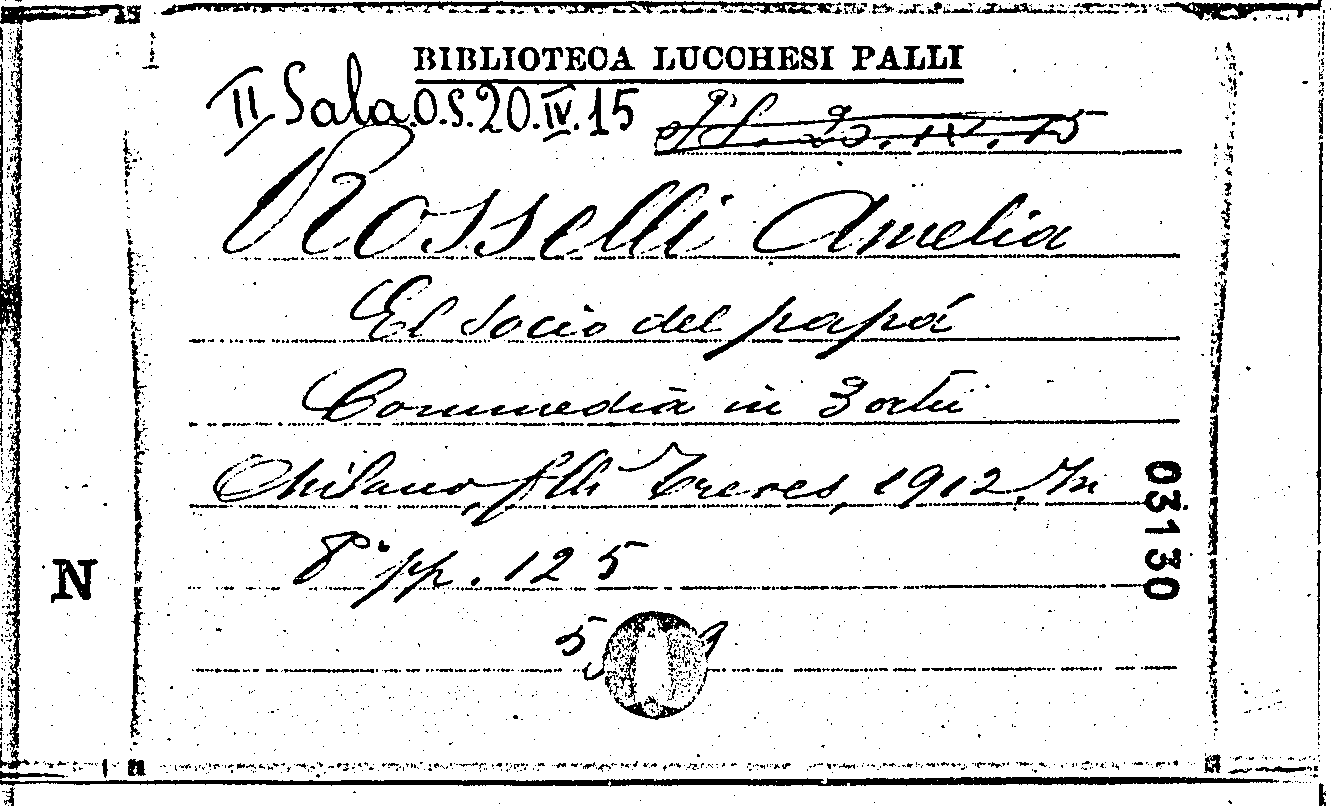 BIBLIOTECA LUCCHESI PALLI
II Sala.O.S.20.IV.15
Rosselli Amelia
El socio del papá
Commedia in 3 atti
Milano, f.lli Treves, 1912. In
8° pp. 125
03130
N